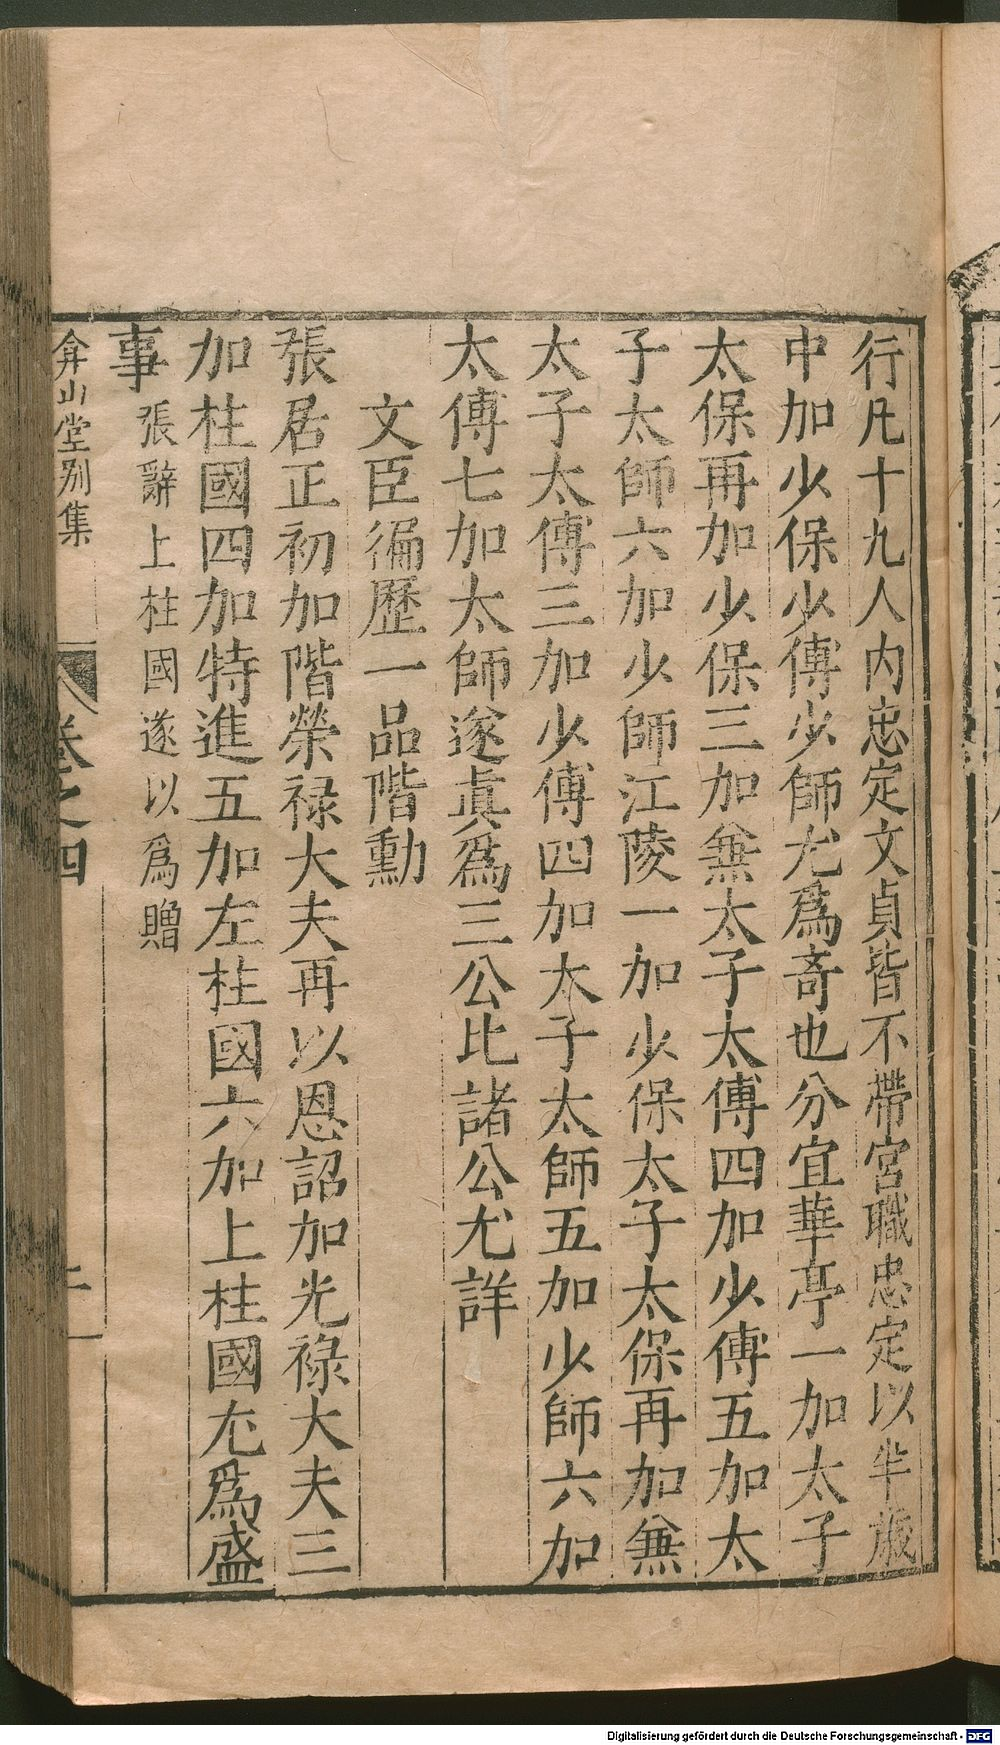 行凡十九人内忠定文貞皆不帶宮職忠定以半歲
中加少保少傅少師尤爲奇也分宜華亭一加太子
太保再加少保三加兼太子太傅四加少傅五加太
子太師六加少師江陵一加少保太子太保再加兼
太子太傅三加少傅四加太子太師五加少師六加
太傅七加太師遂眞爲三公比諸公尤詳
文臣徧歷一品階勳
張居正初加階榮禄大夫再以恩詔加光禄大夫三
加柱國四加特進五加左柱國六加上柱國尤爲盛
事張辭上柱國遂以爲贈
弇山堂别集
卷之四
Digitalisierung gefördert durch die Deutsche Forschungsgemeinschaft - DFG